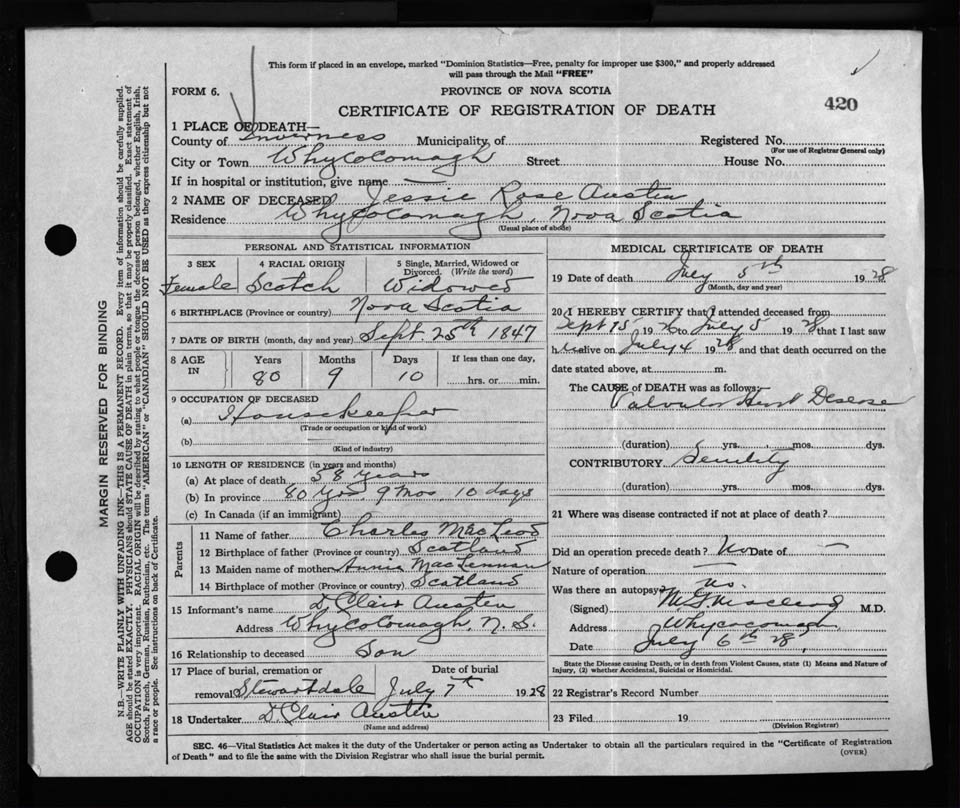 This form if placed in an envelope, marked "Dominion Statistics—Free, penalty for improper use $300," and properly addressed
will pass through the Mail "FREE"
FORM 6.
PROVINCE OF NOVA SCOTIA
CERTIFICATE OF REGISTRATION OF DEATH
420
1 PLACE OF DEATH—
County of Inverness Municipality, of Registered No.
(For use of Registrar General only)
City or Town Whycocomagh Street House No.
If in hospital or institution, give name —
2 NAME OF DECEASED Jessie Rose Austen
Residence Whycocomagh, Nova Scotia
(Usual place of abode)
PERSONAL AND STATISTICAL INFORMATION
3 SEX
Female
4 RACIAL ORIGIN
Scotch
5 Single, Married, Widowed or
Divorced. (Write the word)
Widowed
6 BIRTHPLACE (Province or country) Nova Scotia
7 DATE OF BIRTH (month, day and year) Sept. 25th 1847
8 AGE IN
Years Months Days If less than one day,
80 9 10 hrs. or min.
9 OCCUPATION OF DECEASED
(a) Housekeeper
(Trade or occupation or kind of work)
(b)
(Kind of industry)
10 LENGTH OF RESIDENCE (in years and months)
(a) At place of death 58 years
(b) In province 80 yrs 9 mos 10 days
(c) In Canada (if an immigrant)
Parents
11 Name of father Charles MacLeod
12 Birthplace of father (Province or country) Scotland
13 Maiden name of mother Annie MacLennan
14 Birthplace of mother (Province or country) Scotland
15 Informant's name D. Clair Austen
Address Whycocomagh, N. S.
16 Relationship to deceased Son
17 Place of burial, cremation or Date of burial
removal Stewartdale July 7th 1928
18 Undertaker D. Clair Austen
(Name and address)
MEDICAL CERTIFICATE OF DEATH
19 Date of death July 5th 1928
(Month, day and year)
20 I HEREBY CERTIFY that I attended deceased from
Sept 15 1926 to July 5 1928 that I last saw
her alive on July 4 1928 and that death occurred on the
date stated above, at m.
The CAUSE of DEATH was as follows:—
Valvular Heart Disease
(duration) yrs. mos. dys.
CONTRIBUTORY Senility
(duration) yrs. mos. dys.
21 Where was disease contracted if not at place of death?
Did an operation precede death? No Date of —
Nature of operation —
Was there an autopsy? No.
(Signed) M.D.
Address Whycocomagh
Date July 6th 28,
State the Disease causing Death, or in death from Violent Causes, state (1) Means and Nature of
Injury, (2) whether Accidental, Suicidal or Homicidal.
22 Registrar's Record Number
23 Filed 19
(Division Registrar)
SEC. 46—Vital Statistics Act makes it the duty of the Undertaker or person acting as Undertaker to obtain all the particulars required in the "Certificate of Registration
of Death" and to file the same with the Division Registrar who shall issue the burial permit.
(OVER)
MARGIN RESERVED FOR BINDING
N.B.—WRITE PLAINLY WITH UNFADING INK—THIS IS A PERMANENT RECORD. Every item of information should be carefully supplied.
AGE should be stated EXACTLY. PHYSICIANS should STATE CAUSE OF DEATH in plain terms, so that it may be properly classified. Exact statement of
OCCUPATION is very important. RACIAL ORIGIN will be described by stating to what people or tongue the deceased person belonged, whether English, Irish,
Scotch, French, German, Russian, Ruthenian, etc. The terms "AMERICAN" or "CANADIAN" SHOULD NOT BE USED as they express citizenship but not
a race or people. See instructions on back of Certificate.